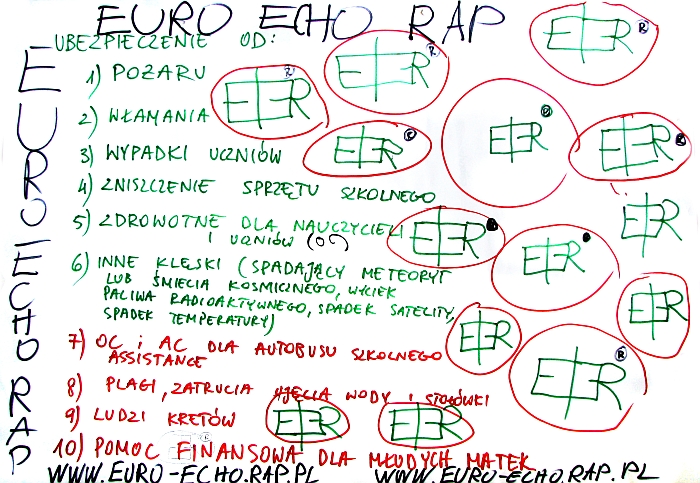 EURO ECHO RAP
EURO ECHO RAP
UBEZPIECZENIE OD:
1) POŻARU
2) WŁAMANIA
3) WYPADKI UCZNIÓW
4) ZNISZCZENIE SPRZĘTU SZKOLNEGO
5) ZDROWOTNE DLA NAUCZYCIELI
I UCZNIÓW
6) INNE KLĘSKI (SPADAJĄCY METEORYT
LUB ŚMIECIA KOSMICZNEGO, WYCIEK
PALIWA RADIOAKTYWNEGO, SPADEK SATELITY,
SPADEK TEMPERATURY)
7) OC i AC DLA AUTOBUSU SZKOLNEGO
ASSISTANCE
8) PLAGI, ZATRUCIA UJĘCIA WODY I STOŁÓWKI
9) LUDZI KRETÓW
10) POMOC FINANSOWA DLA MŁODYCH MATEK
WWW.EURO-ECHO.RAP.PL WWW.EURO-ECHO.RAP.PL
EER R
EER R
EER R
EER R
EER R
EER R
EER
EER
EER
EER
EER
EER R
EER
EER